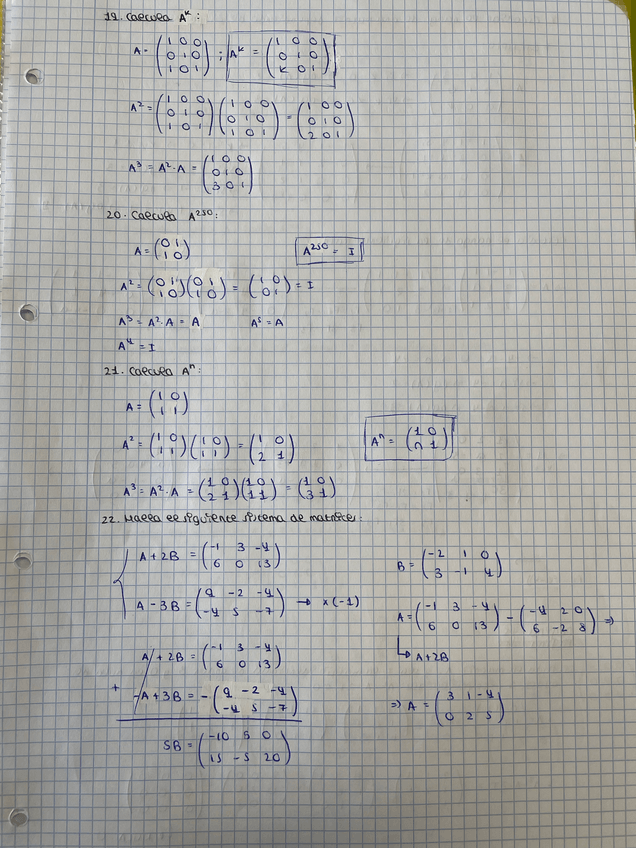 19. Calcula A^k:
A = (1 0 0 / 0 1 0 / 1 0 1) ; A^k = (1 0 0 / 0 1 0 / k 0 1)
A² = (1 0 0 / 0 1 0 / 1 0 1)(1 0 0 / 0 1 0 / 1 0 1) = (1 0 0 / 0 1 0 / 2 0 1)
A³ = A²·A = (1 0 0 / 0 1 0 / 3 0 1)
20. Calcula A^250:
A = (0 1 / 1 0) A^250 = I
A² = (0 1 / 1 0)(0 1 / 1 0) = (1 0 / 0 1) = I
A³ = A²·A = A A⁵ = A
A⁴ = I
21. Calcula A^n:
A = (1 0 / 1 1)
A² = (1 0 / 1 1)(1 0 / 1 1) = (1 0 / 2 1) A^n = (1 0 / n 1)
A³ = A²·A = (1 0 / 2 1)(1 0 / 1 1) = (1 0 / 3 1)
22. Halla el siguiente sistema de matrices:
A + 2B = (-1 3 -4 / 6 0 13) B = (-2 1 0 / 3 -1 4)
A - 3B = (9 -2 -4 / -4 5 -7) → x(-1) A = (-1 3 -4 / 6 0 13) - (-4 2 0 / 6 -2 8) ⇒
A + 2B = (-1 3 -4 / 6 0 13) ↳ A+2B
+ -A + 3B = -(9 -2 -4 / -4 5 -7) ⇒ A = (3 1 -4 / 0 2 5)
5B = (-10 5 0 / 15 -5 20)